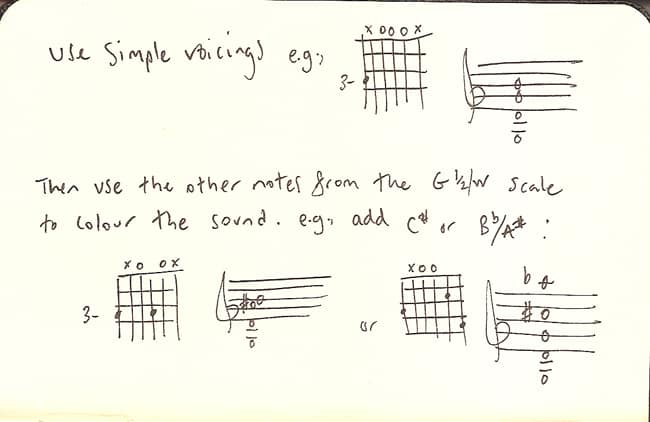 Use simple voicings e.g;
x o o o x
3-
Then use the other notes from the G ½/W scale
to colour the sound. e.g; add C# or Bb/A# :
x o o x
3-
or
x o o